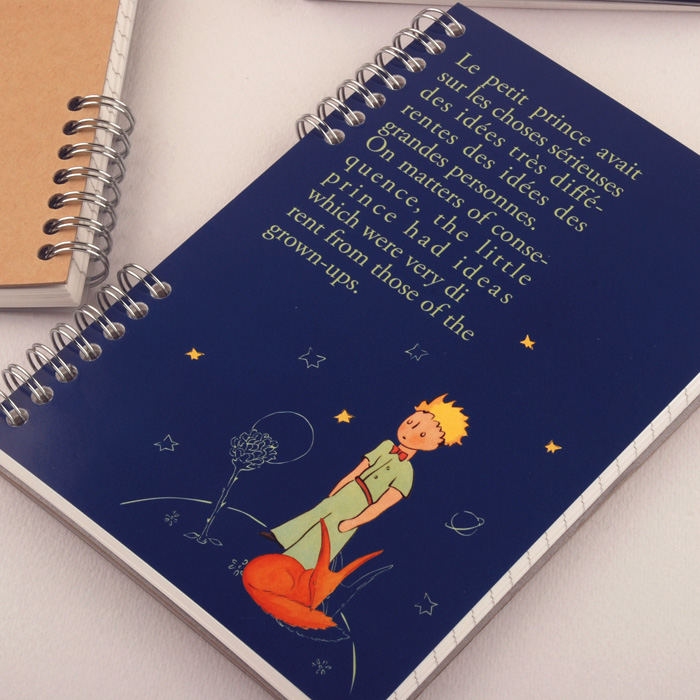 Le petit prince avait
sur les choses sérieuses
des idées très diffé-
rentes des idées des
grandes personnes.
On matters of conse-
quence, the little
prince had ideas
which were very di
rent from those of the
grown-ups.